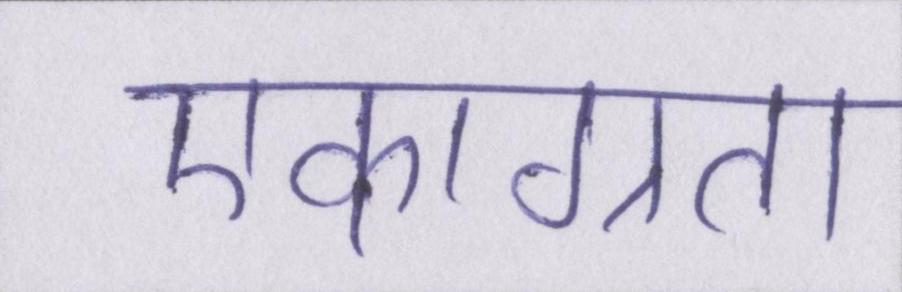 एकाग्रता